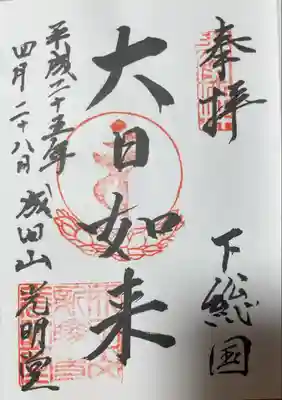 奉拝
下総国
大日如来
平成二十五年
四月二十八日 成田山 光明堂